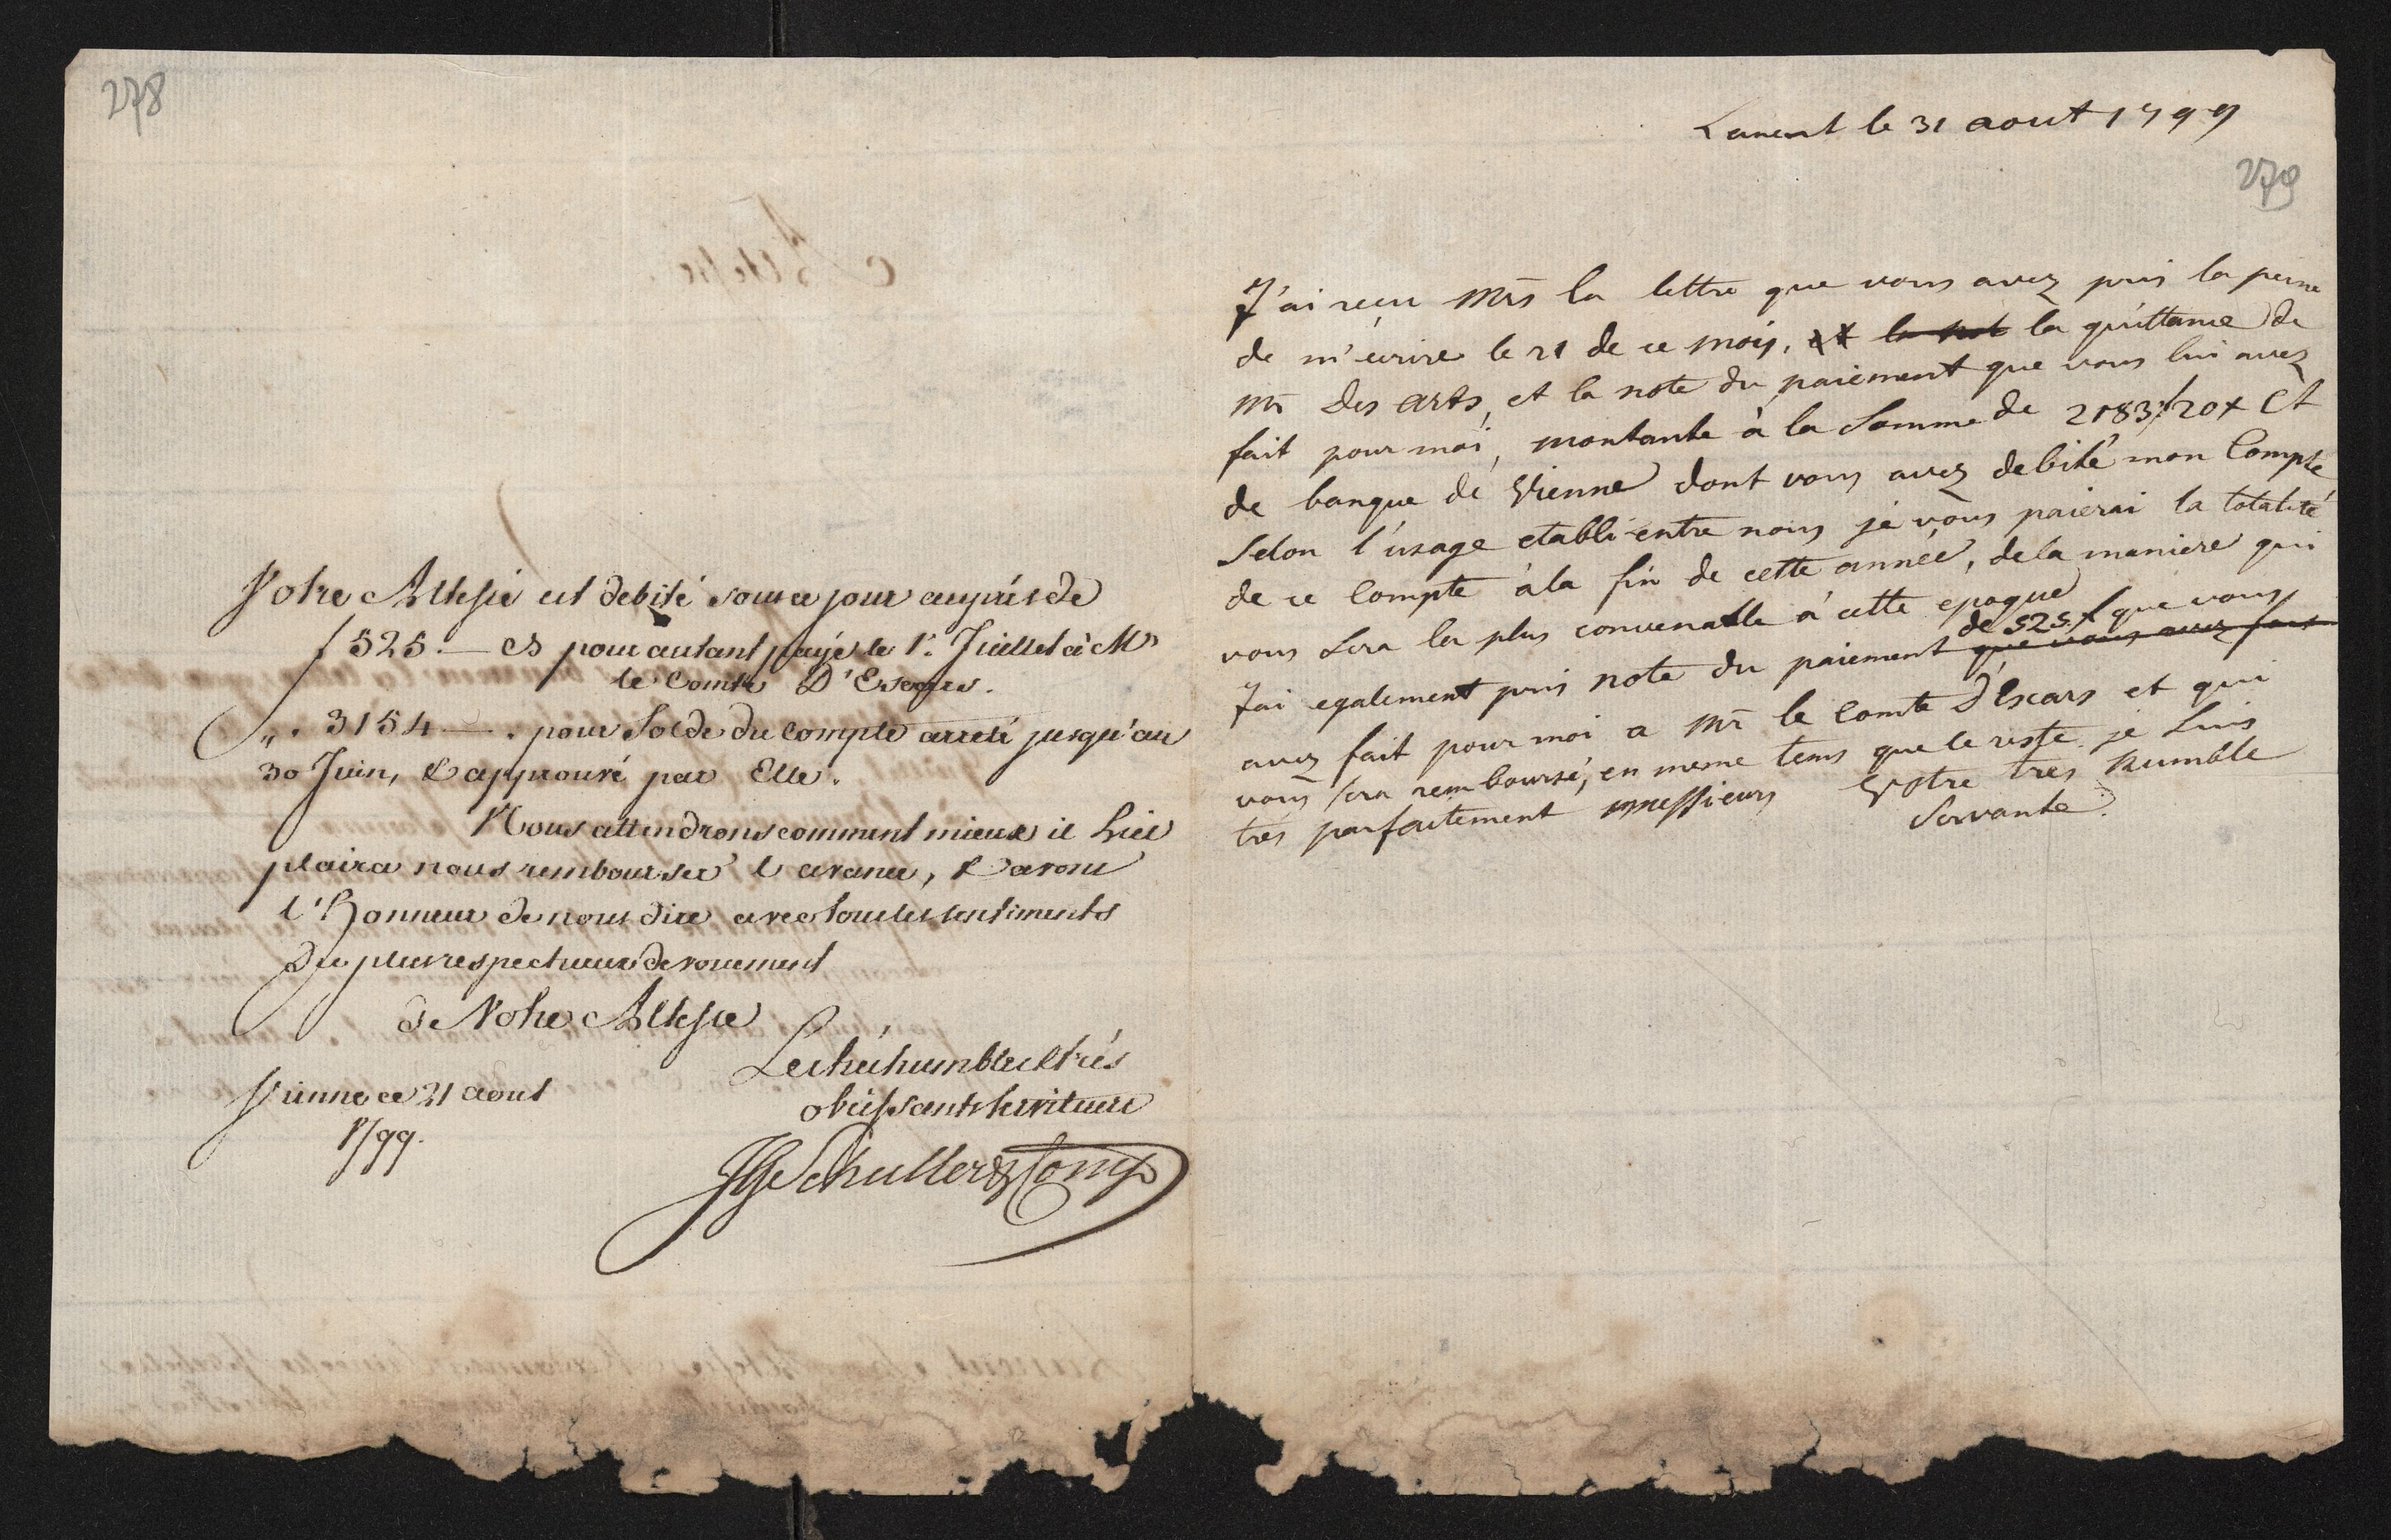 278
Votre Altesse est debité sous ce jour auprès de
f 525.— Cs pour autant payé le 1r. Juillet à Mr
le Comte D'Escars.
„ . 3154 — . pour Solde du compte arreté jusqu'au
30 Juin, & approuvé par Elle.
Nous attendrons comment mieux il Lui
plaira nous rembourser l'avance, & avons
l'Honneur de nous dire avec tous les sentiments
du plus respectueux devouement
de Votre Altesse
Les très humbles & très
obeissants serviteurs
Vienne ce 21 aout
1799.
JG Schuller & Comp
Lancut le 31 aout 1799
279
J'ai reçu Mrs la lettre que vous avez pris la peine
de m'écrire le 21 de ce mois, et la not la quittance de
Mr Des arts, et la note du paiement que vous lui avez
fait pour moi, montante à la Somme de 2183f 20x Ct
de banque de Vienne dont vous avez debité mon Compte
Selon l'usage etabli entre nous je vous paierai la totalité
de ce Compte à la fin de cette année, de la maniere qui
vous sera la plus convenable à cette epoque
de 525 f que vous
J'ai egalement pris note du paiement que vous avez fait
avez fait pour moi a Mr le Comte d'Escars et qui
vous sera remboursé, en meme tems que le reste. je Suis
très parfaitement messieurs Votre très humble
Servante.